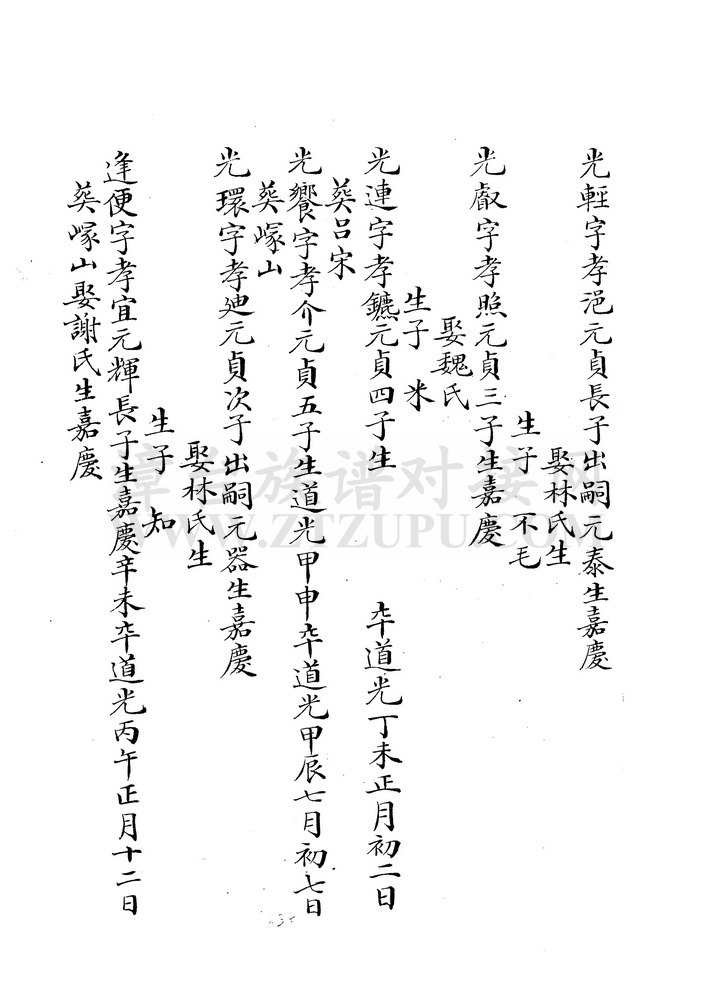 光輊字孝浥元貞長子出嗣元泰生嘉慶
娶林氏生
生子 不毛
光叡字孝照元貞三子生嘉慶
娶魏氏
生子 米
光連字孝鑣元貞四子生 卒道光丁未正月初二日
葬呂宋
光饗字孝介元貞五子生道光甲申卒道光甲辰七月初七日
葬嵺山
光環字孝廸元貞次子出嗣元器生嘉慶
娶林氏生
生子 知
逢便字孝宜元輝長子生嘉慶辛未卒道光丙午正月十二日
葬嵺山娶謝氏生嘉慶
漳台族谱对接网
WWW.ZTZUPU.COM